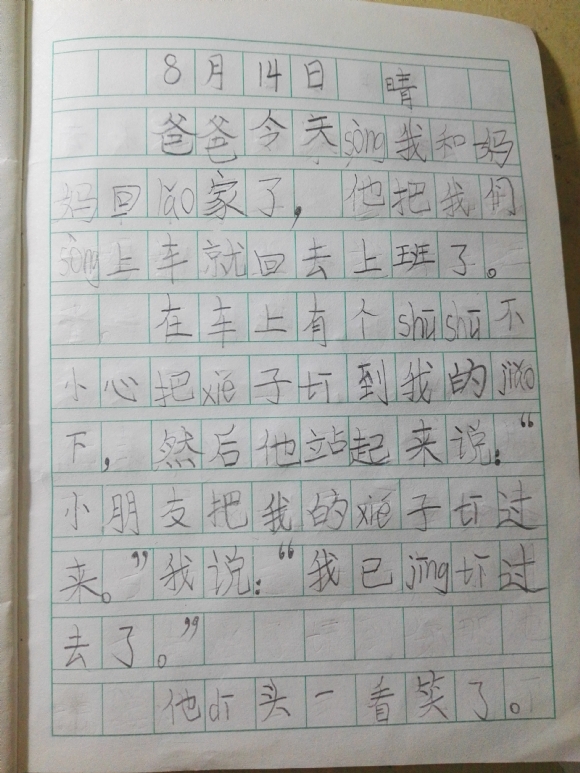 8月14日 晴
爸爸今天sòng我和妈
妈回lǎo家了，他把我们
sòng上车就回去上班了。
在车上有个shūshū不
小心把xié子tī到我的jiǎo
下，然后他站起来说：“
小朋友把我的xié子tī过
来。”我说：“我已jīngtī过
去了。”
他dī头一看笑了。